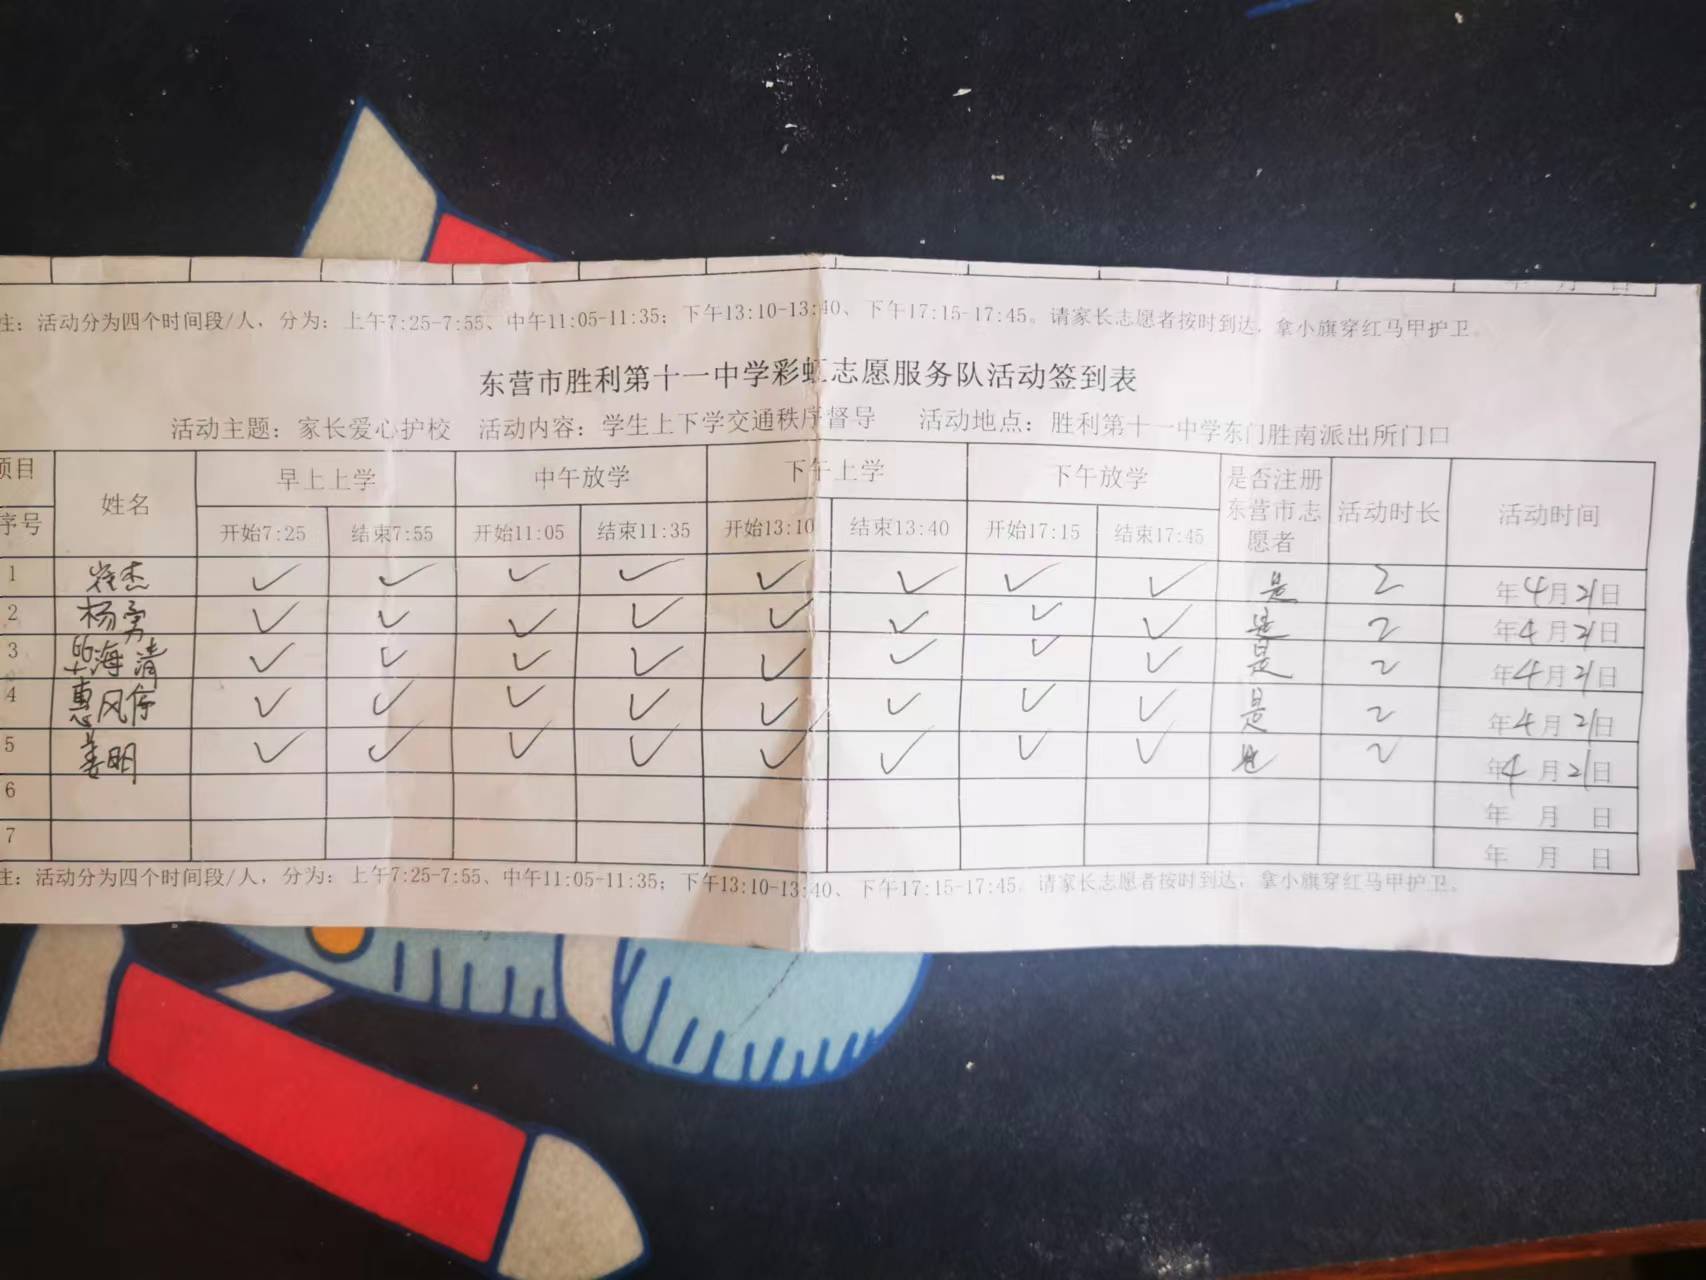 年 月 日
注：活动分为四个时间段/人，分为：上午7:25-7:55、中午11:05-11:35；下午13:10-13:40、下午17:15-17:45。请家长志愿者按时到达，拿小旗穿红马甲护卫。
东营市胜利第十一中学彩虹志愿服务队活动签到表
活动主题：家长爱心护校 活动内容：学生上下学交通秩序督导 活动地点：胜利第十一中学东门胜南派出所门口
项目 姓名 早上上学 中午放学 下午上学 下午放学 是否注册东营市志愿者 活动时长 活动时间
序号 开始7:25 结束7:55 开始11:05 结束11:35 开始13:10 结束13:40 开始17:15 结束17:45
1 崔杰 ✓ ✓ ✓ ✓ ✓ ✓ ✓ ✓ 是 2 年4月21日
2 杨勇 ✓ ✓ ✓ ✓ ✓ ✓ ✓ ✓ 是 2 年4月21日
3 海清 ✓ ✓ ✓ ✓ ✓ ✓ ✓ ✓ 是 2 年4月21日
4 惠风停 ✓ ✓ ✓ ✓ ✓ ✓ ✓ ✓ 是 2 年4月21日
5 姜明 ✓ ✓ ✓ ✓ ✓ ✓ ✓ ✓ 是 2 年4月21日
6 年 月 日
7 年 月 日
注：活动分为四个时间段/人，分为：上午7:25-7:55、中午11:05-11:35；下午13:10-13:40、下午17:15-17:45。请家长志愿者按时到达，拿小旗穿红马甲护卫。